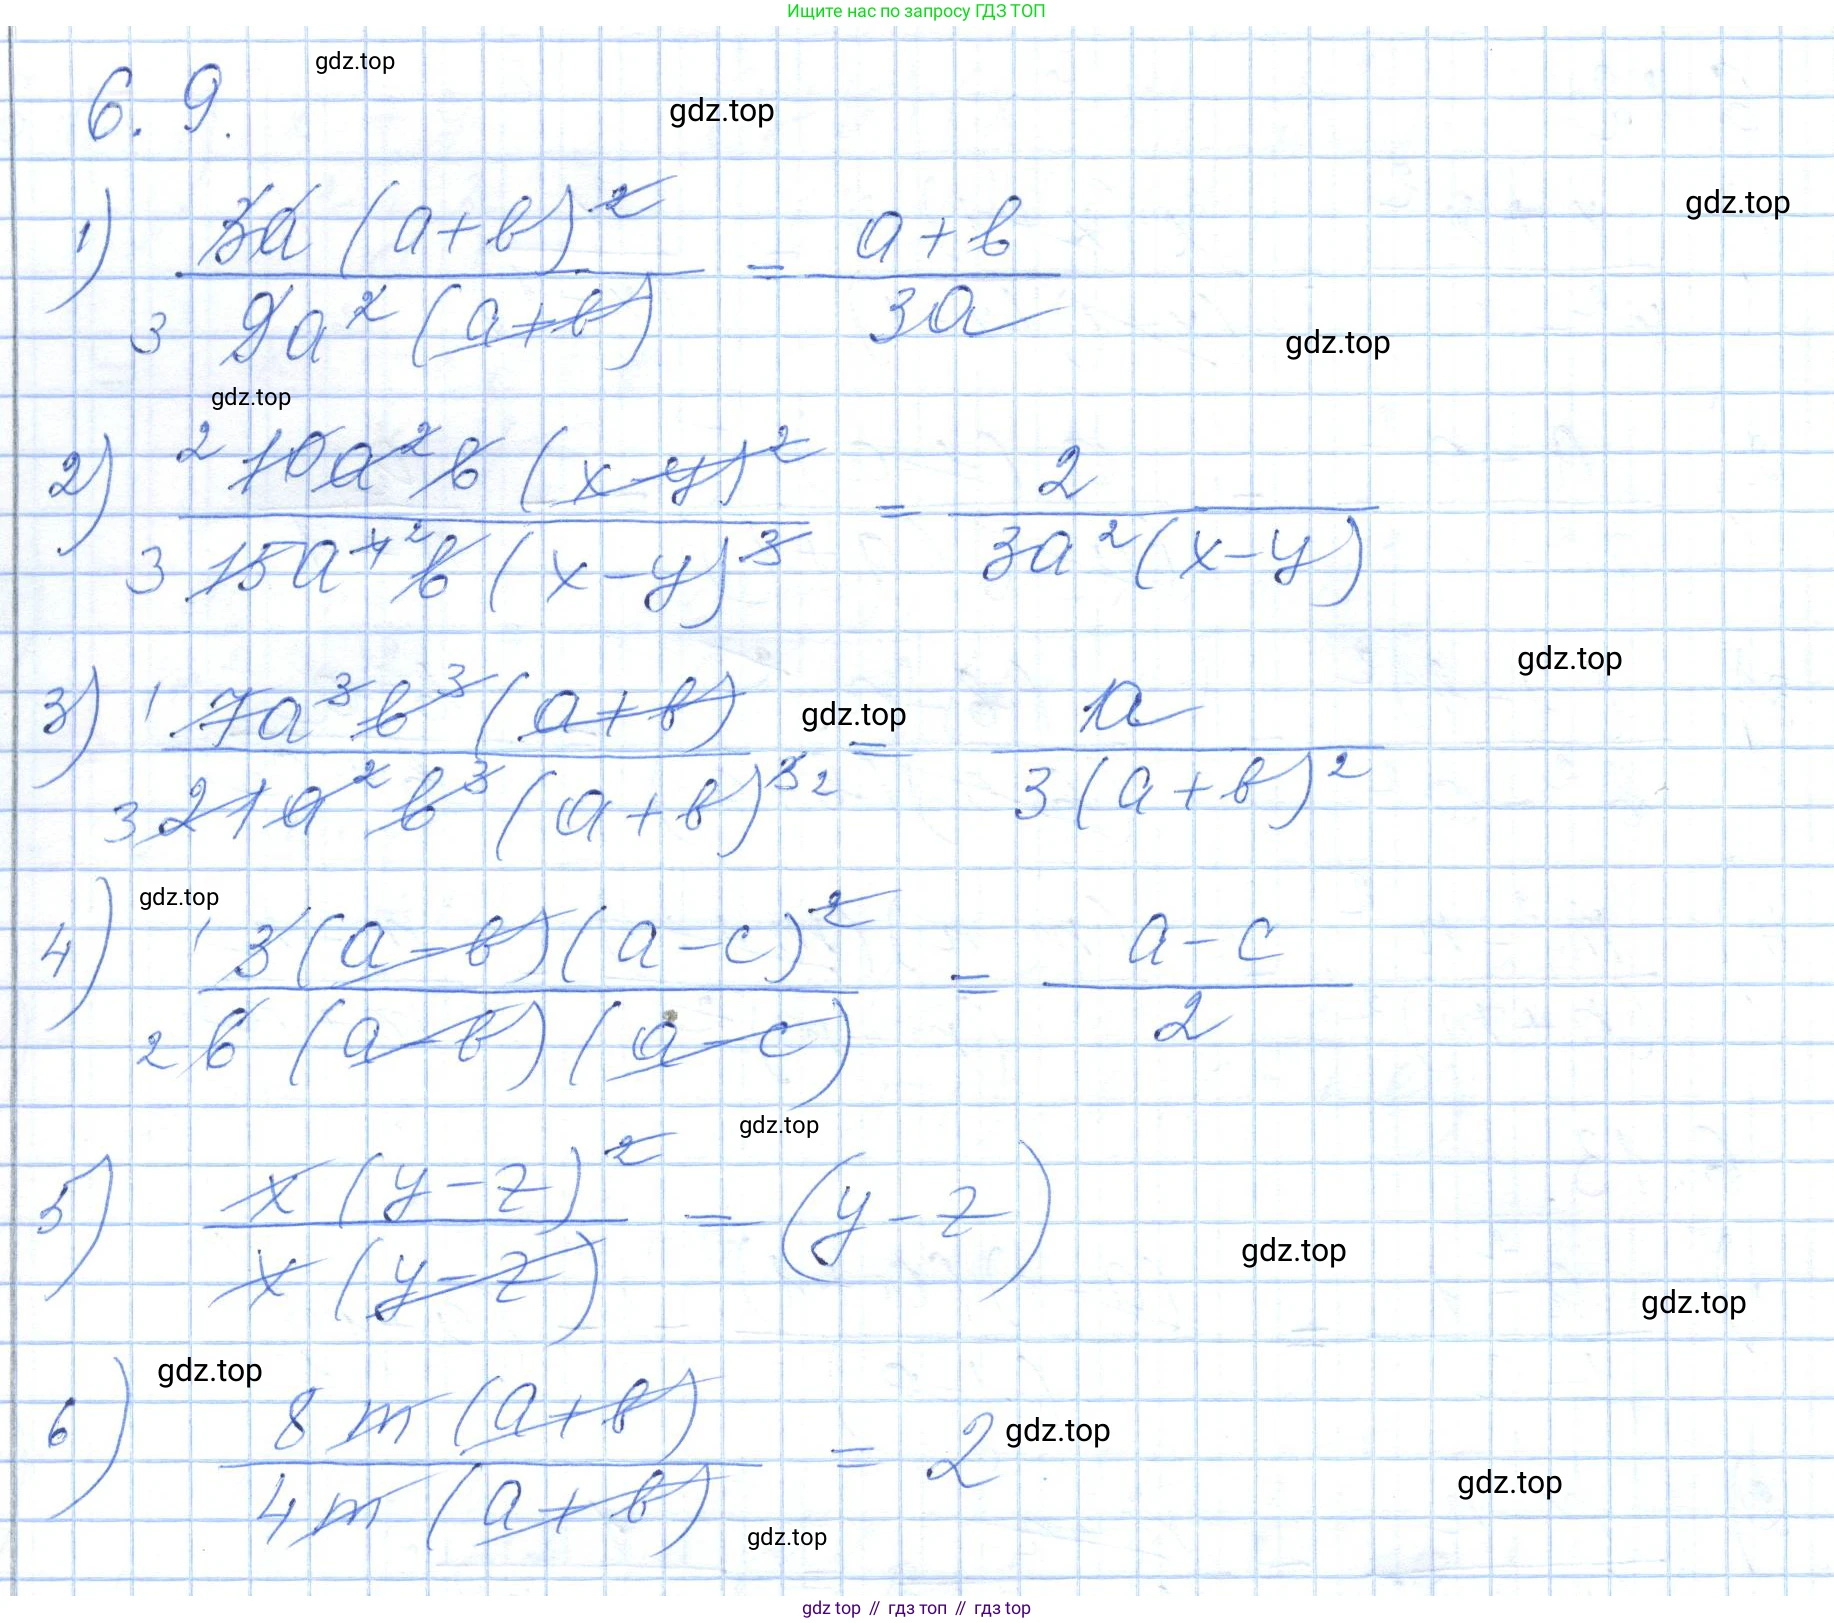 Ищите нас по запросу ГДЗ ТОП
6.9.
gdz.top
gdz.top
gdz.top
1) 3a(a+b)^2 / 9a^2(a+b) 3 = a+b / 3a
gdz.top
gdz.top
2) 2 10a^2b(x-y)^2 / 3 15a^4 2 b(x-y)^3 = 2 / 3a^2(x-y)
gdz.top
3) 1 7a^3b^3(a+b) / 3 21a^2b^3(a+b)^3 2 = a / 3(a+b)^2
gdz.top
gdz.top
4) 1 3(a-b)(a-c)^2 / 2 6(a-b)(a-c) = a-c / 2
gdz.top
5) x(y-z)^2 / x(y-z) = (y-z)
gdz.top
gdz.top
gdz.top
6) 8m(a+b) / 4m(a+b) = 2
gdz.top
gdz.top
gdz.top
gdz top // гдз топ // гдз top